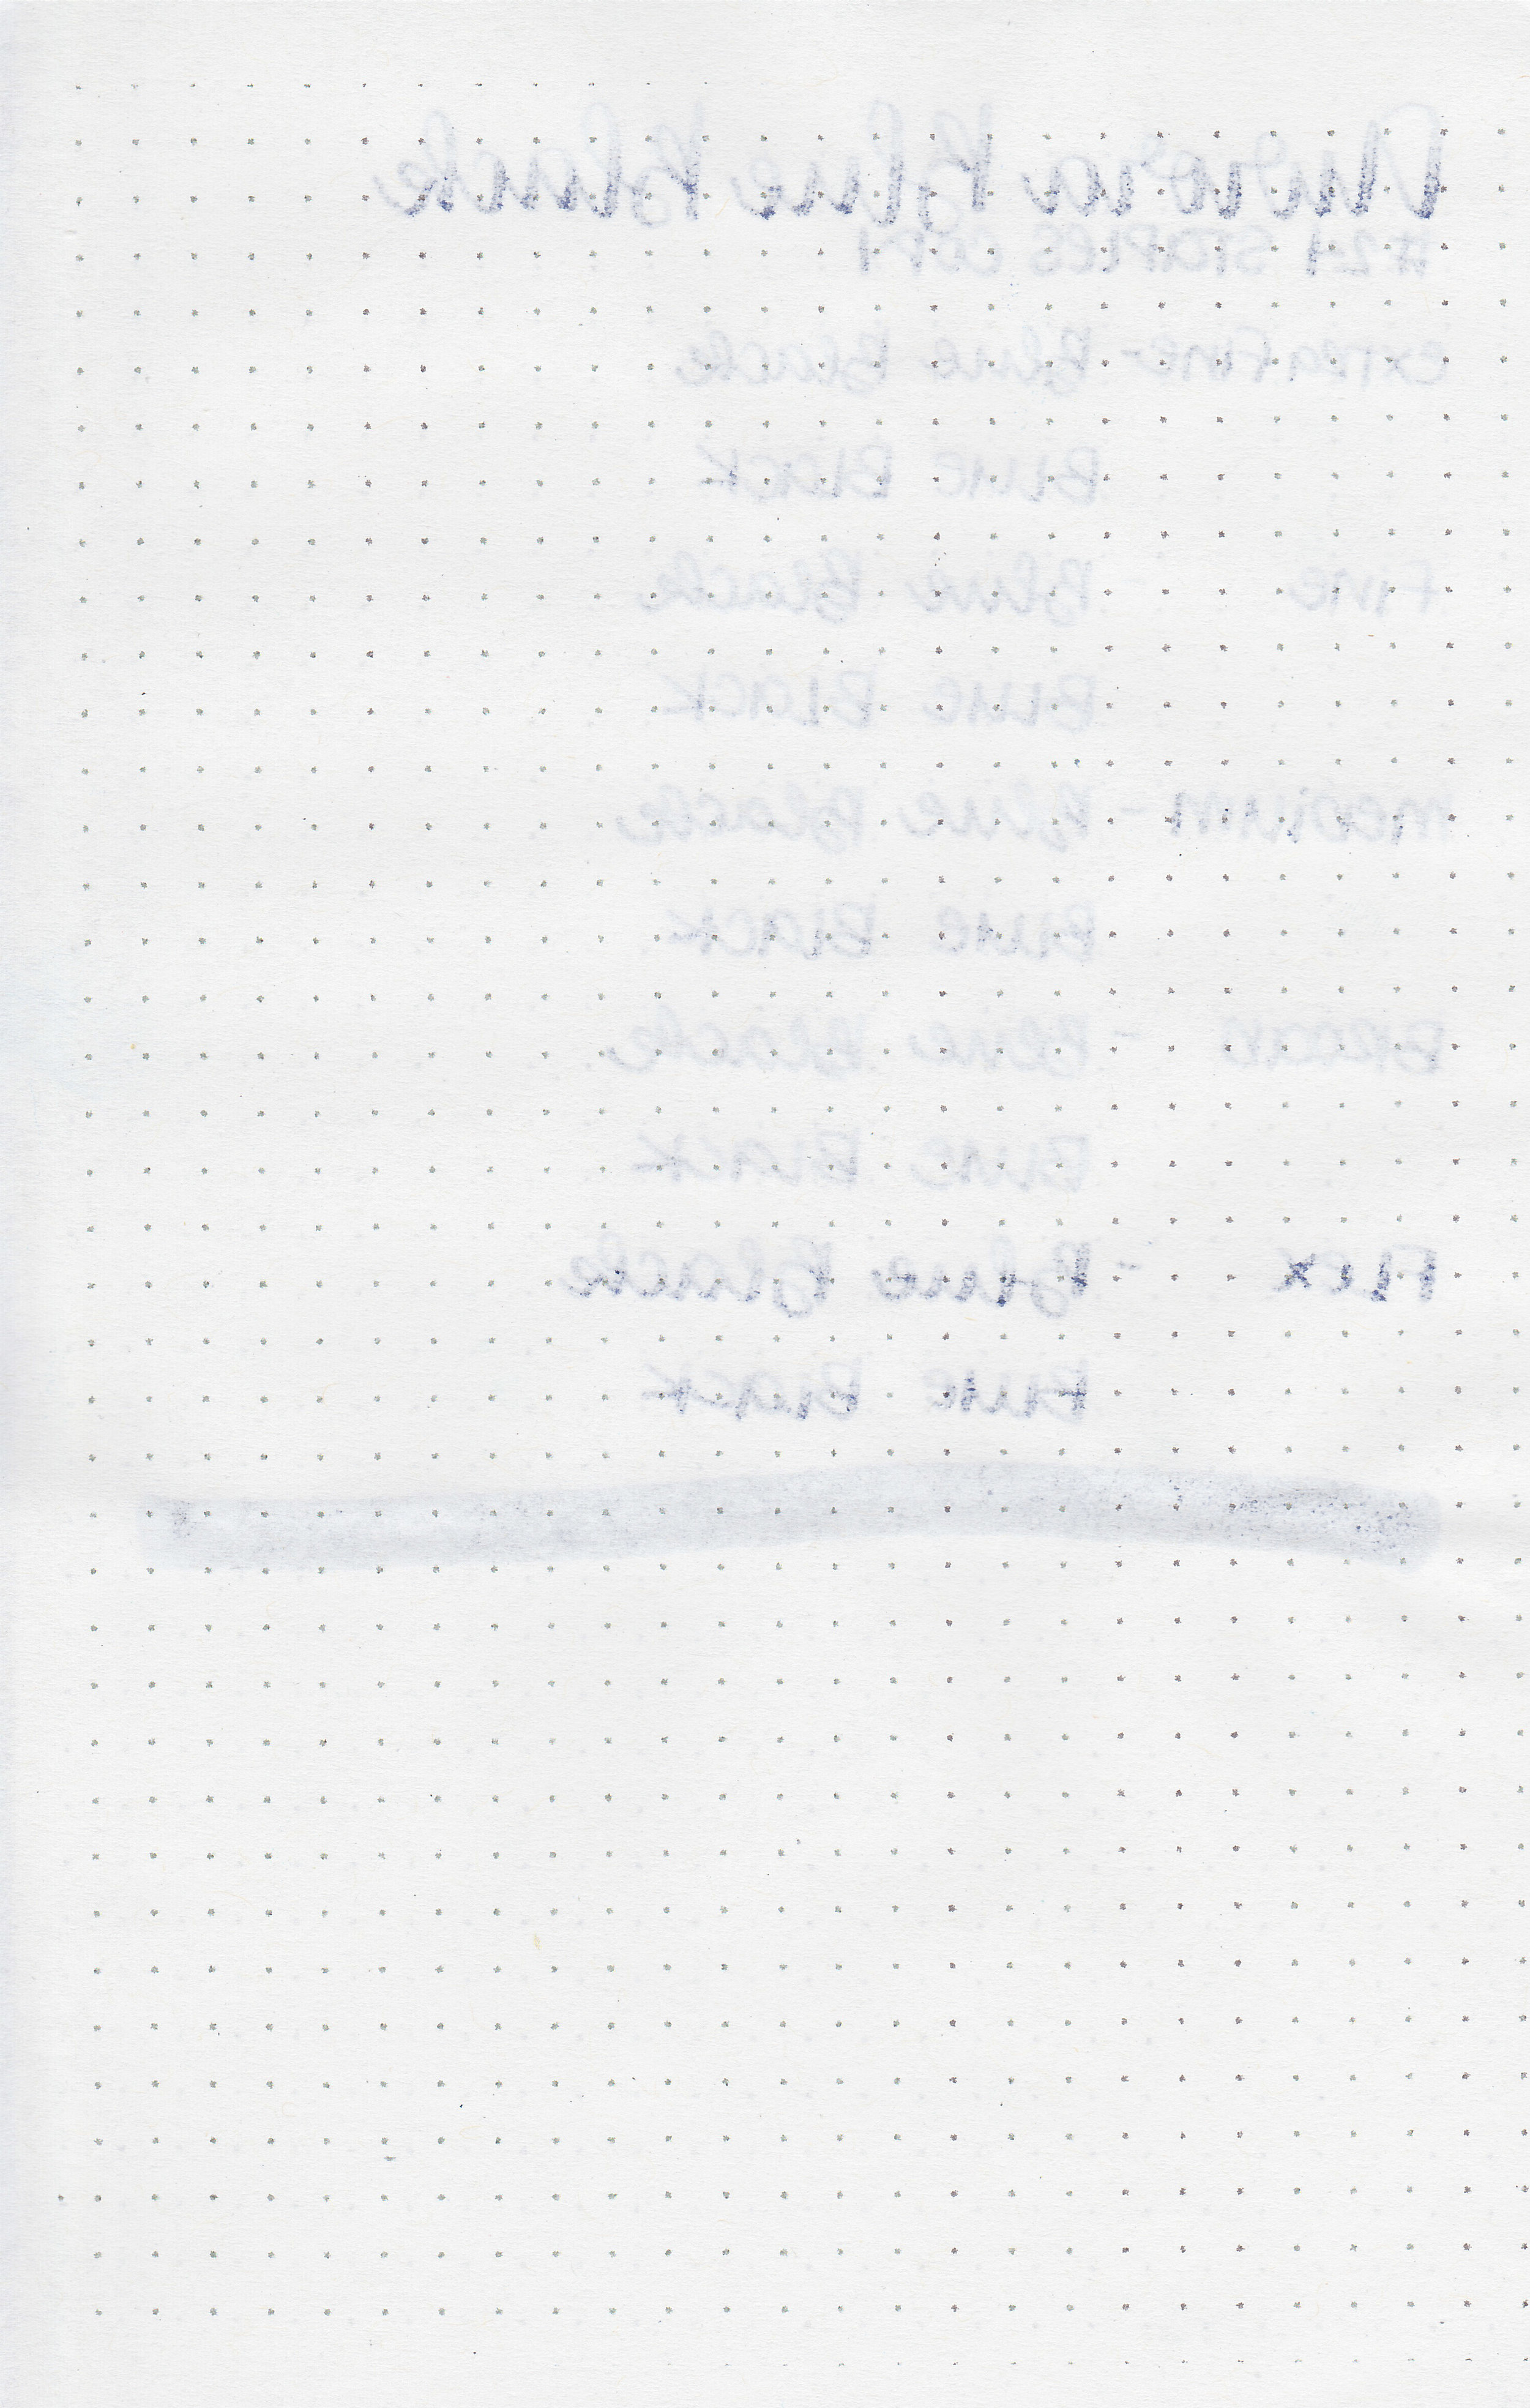 Aurora Blue Black
#24 STAPLES COPY
EXTRA FINE - Blue Black
Blue Black
Fine Blue Black
Blue Black
medium - Blue Black
Blue Black
BROAD - Blue Black
Blue Black
Flex - Blue Black
Blue Black